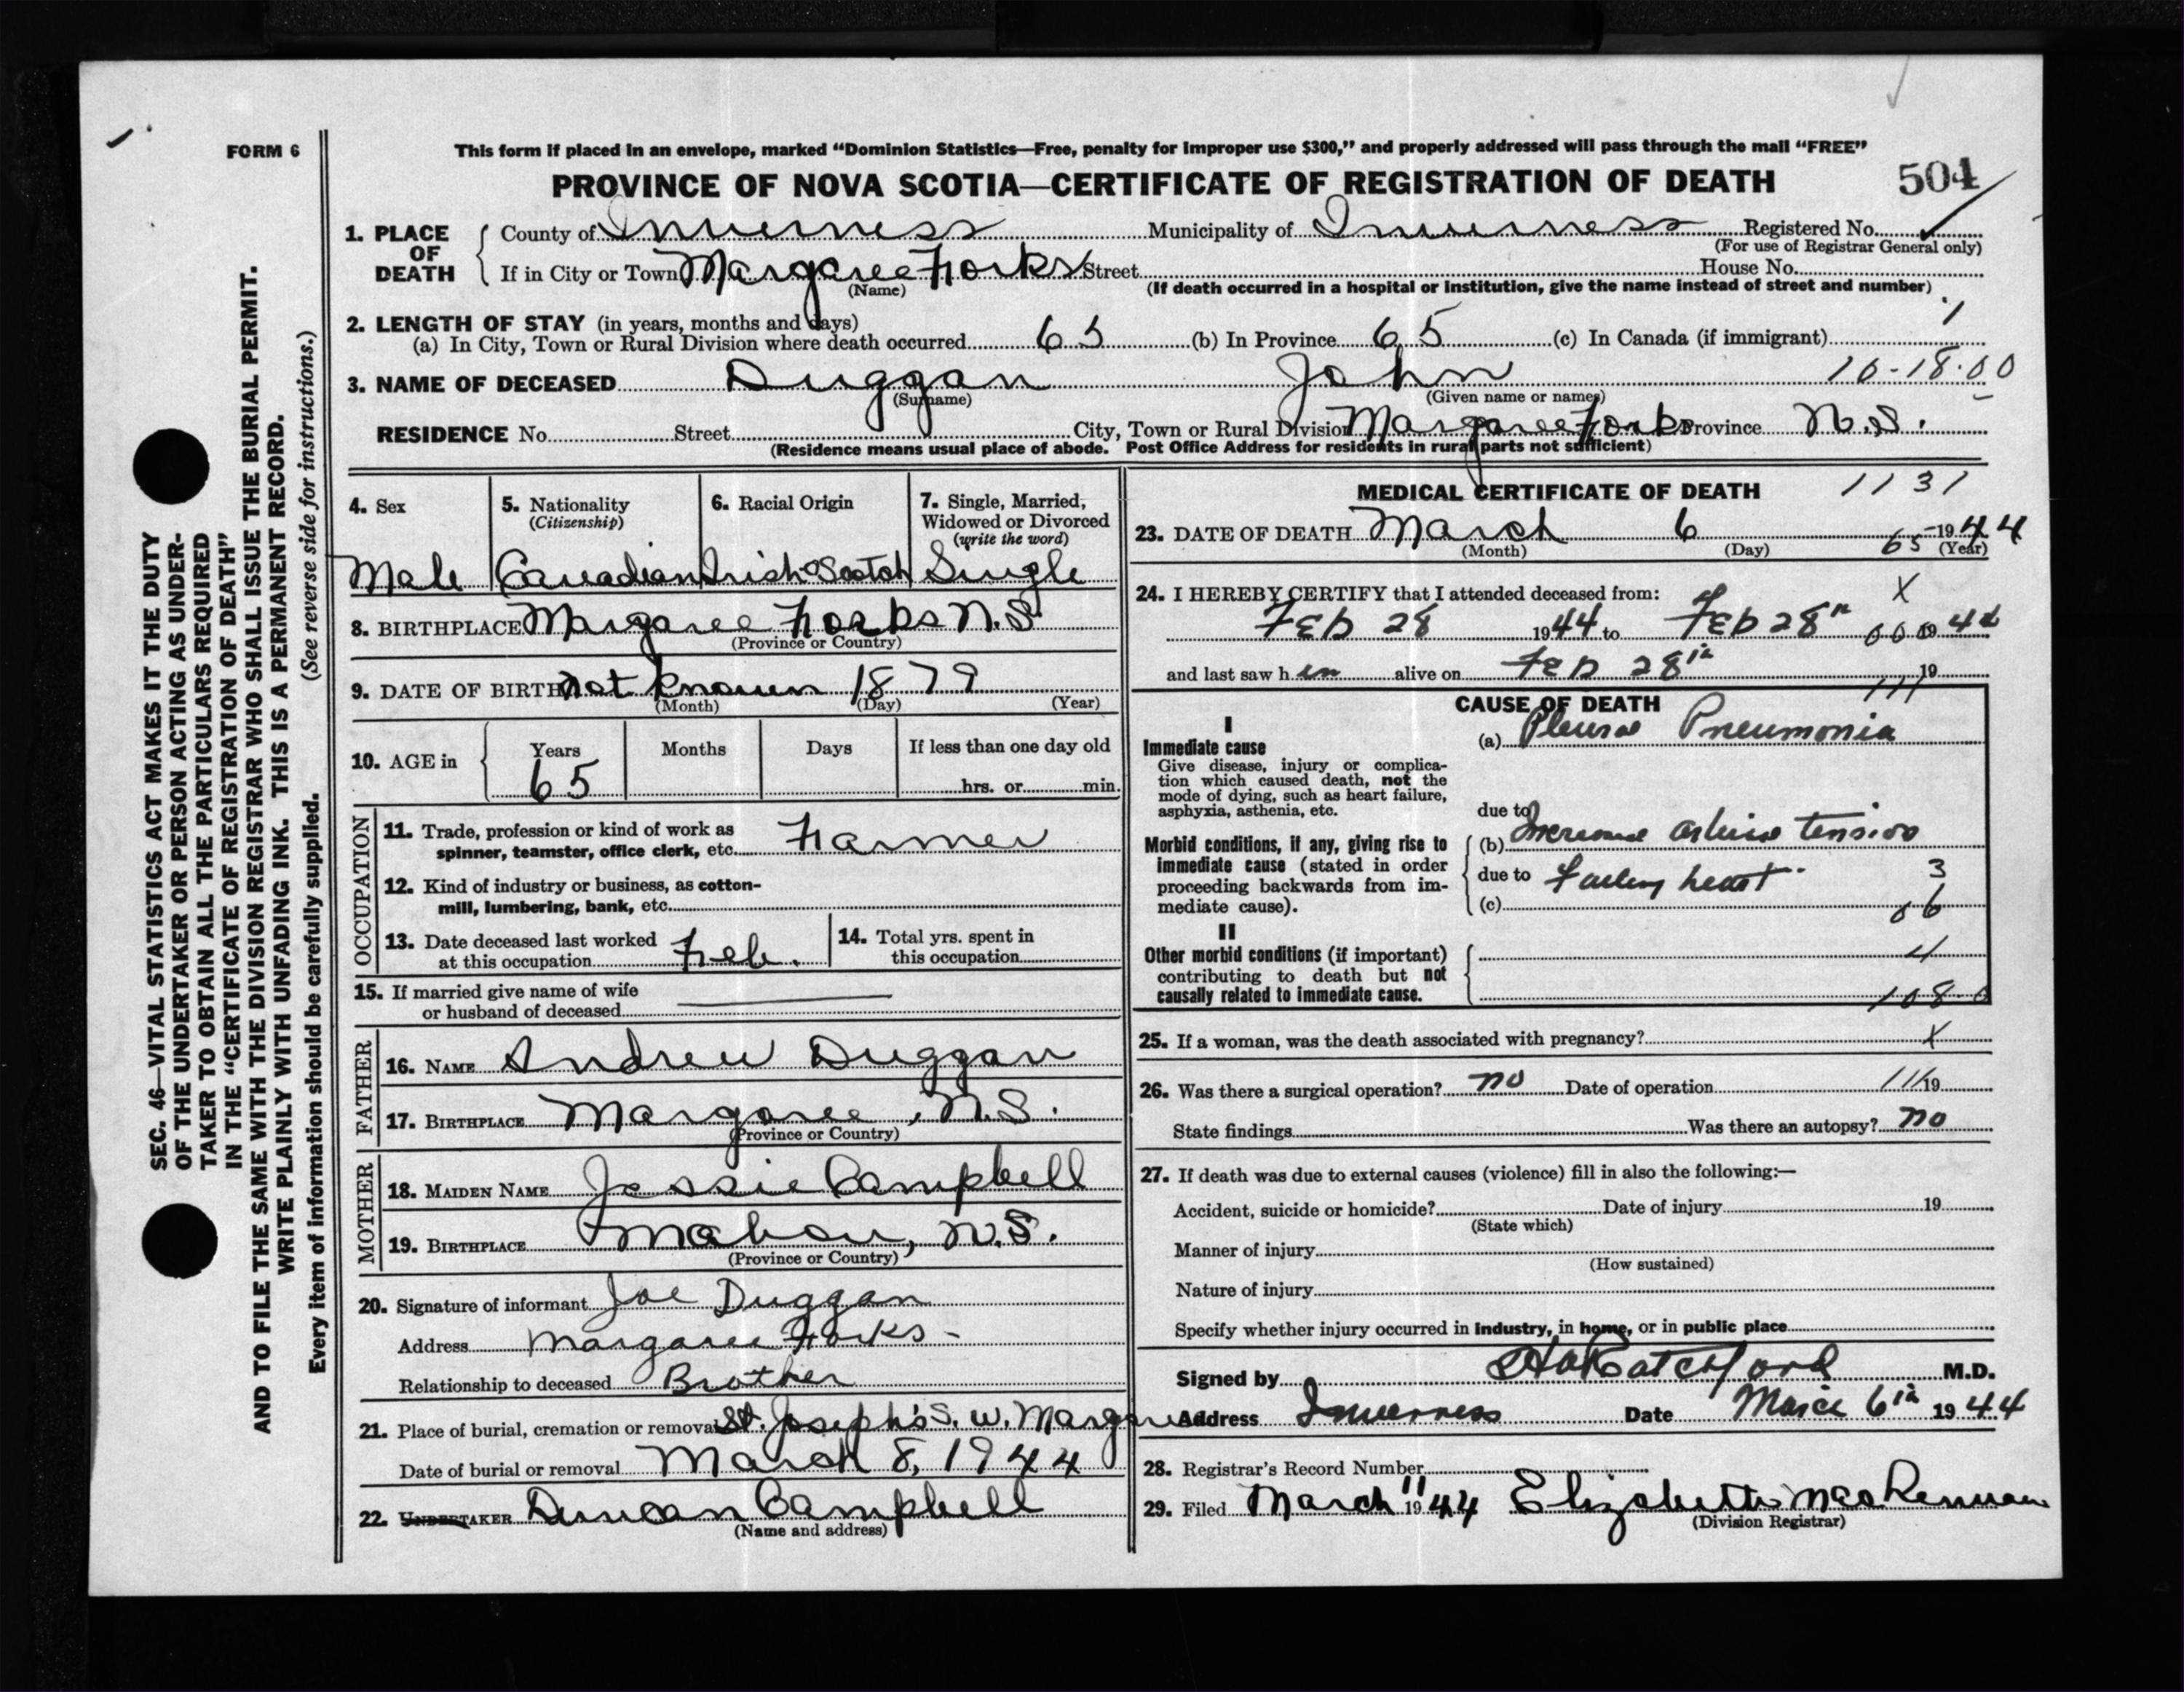 FORM 6
This form if placed in an envelope, marked “Dominion Statistics—Free, penalty for improper use $300,” and properly addressed will pass through the mail “FREE”
PROVINCE OF NOVA SCOTIA—CERTIFICATE OF REGISTRATION OF DEATH
504
1. PLACE OF DEATH
County of Inverness Municipality of Inverness Registered No.
(For use of Registrar General only)
If in City or Town Margaree Forks Street House No.
(Name) (If death occurred in a hospital or institution, give the name instead of street and number)
2. LENGTH OF STAY (in years, months and days)
(a) In City, Town or Rural Division where death occurred 65 (b) In Province 65 (c) In Canada (if immigrant)
3. NAME OF DECEASED Duggan John 10-18-00
(Surname) (Given name or names)
RESIDENCE No. Street City, Town or Rural Division Margaree Forks Province N.S.
(Residence means usual place of abode. Post Office Address for residents in rural parts not sufficient)
4. Sex
Male
5. Nationality
(Citizenship)
Canadian
6. Racial Origin
Irish-Scotch
7. Single, Married,
Widowed or Divorced
(write the word)
Single
8. BIRTHPLACE Margaree Forks N.S.
(Province or Country)
9. DATE OF BIRTH not known 1879
(Month) (Day) (Year)
10. AGE in
Years Months Days If less than one day old
65 hrs. or min.
OCCUPATION
11. Trade, profession or kind of work as
spinner, teamster, office clerk, etc. Farmer
12. Kind of industry or business, as cotton-
mill, lumbering, bank, etc.
13. Date deceased last worked
at this occupation Feb.
14. Total yrs. spent in
this occupation
15. If married give name of wife
or husband of deceased
FATHER
16. NAME Andrew Duggan
17. BIRTHPLACE Margaree, N.S.
(Province or Country)
MOTHER
18. MAIDEN NAME Jessie Campbell
19. BIRTHPLACE Mabou, N.S.
(Province or Country)
20. Signature of informant Joe Duggan
Address Margaree Forks
Relationship to deceased Brother
21. Place of burial, cremation or removal St. Joseph's S. W. Margaree
Date of burial or removal March 8, 1944
22. UNDERTAKER Duncan Campbell
(Name and address)
MEDICAL CERTIFICATE OF DEATH 1131
23. DATE OF DEATH March 6 1944
(Month) (Day) 65 (Year)
24. I HEREBY CERTIFY that I attended deceased from: X
Feb 28 1944 to Feb 28th 000 1944
and last saw h im alive on Feb 28th 19
111
CAUSE OF DEATH
I
Immediate cause
Give disease, injury or complica-
tion which caused death, not the
mode of dying, such as heart failure,
asphyxia, asthenia, etc.
(a) Pleural Pneumonia
due to
Morbid conditions, if any, giving rise to
immediate cause (stated in order
proceeding backwards from im-
mediate cause).
(b) tension
due to failing heart 3
(c) 06
II
Other morbid conditions (if important)
contributing to death but not
causally related to immediate cause.
4
108-0
25. If a woman, was the death associated with pregnancy? X
26. Was there a surgical operation? no Date of operation 111 19
State findings Was there an autopsy? no
27. If death was due to external causes (violence) fill in also the following:—
Accident, suicide or homicide? Date of injury 19
(State which)
Manner of injury
(How sustained)
Nature of injury
Specify whether injury occurred in industry, in home, or in public place
Signed by Ratchford M.D.
Address Inverness Date March 6th 1944
28. Registrar's Record Number
29. Filed March 11 1944 Elizabeth MacLennan
(Division Registrar)
SEC. 46—VITAL STATISTICS ACT MAKES IT THE DUTY
OF THE UNDERTAKER OR PERSON ACTING AS UNDER-
TAKER TO OBTAIN ALL THE PARTICULARS REQUIRED
IN THE “CERTIFICATE OF REGISTRATION OF DEATH”
AND TO FILE THE SAME WITH THE DIVISION REGISTRAR WHO SHALL ISSUE THE BURIAL PERMIT.
WRITE PLAINLY WITH UNFADING INK. THIS IS A PERMANENT RECORD.
Every item of information should be carefully supplied. (See reverse side for instructions.)